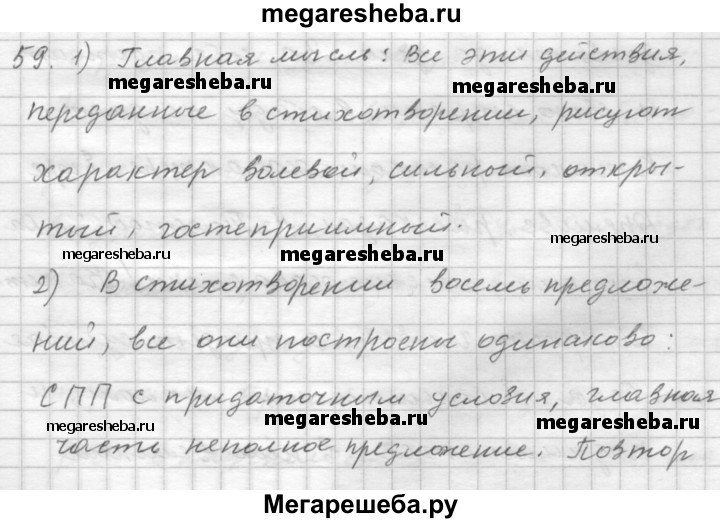 megaresheba.ru
59. 1) Главная мысль: Все эти действия,
megaresheba.ru megaresheba.ru
переданные в стихотворении, рисуют
характер волевой, сильный, откры-
тый, гостеприимный.
megaresheba.ru megaresheba.ru megaresheba.ru
2) В стихотворении восемь предложе-
ний, все они построены одинаково:
СПП с придаточным условия, главная
megaresheba.ru megaresheba.ru megaresheba.ru
часть неполное предложение. Повтор
Мегарешеба.ру